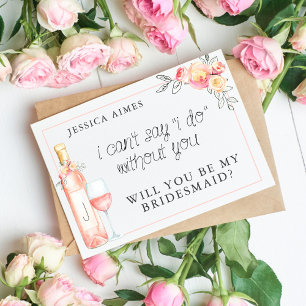 JESSICA AIMES
i can't say "i do"
without you
WILL YOU BE MY
BRIDESMAID?
J